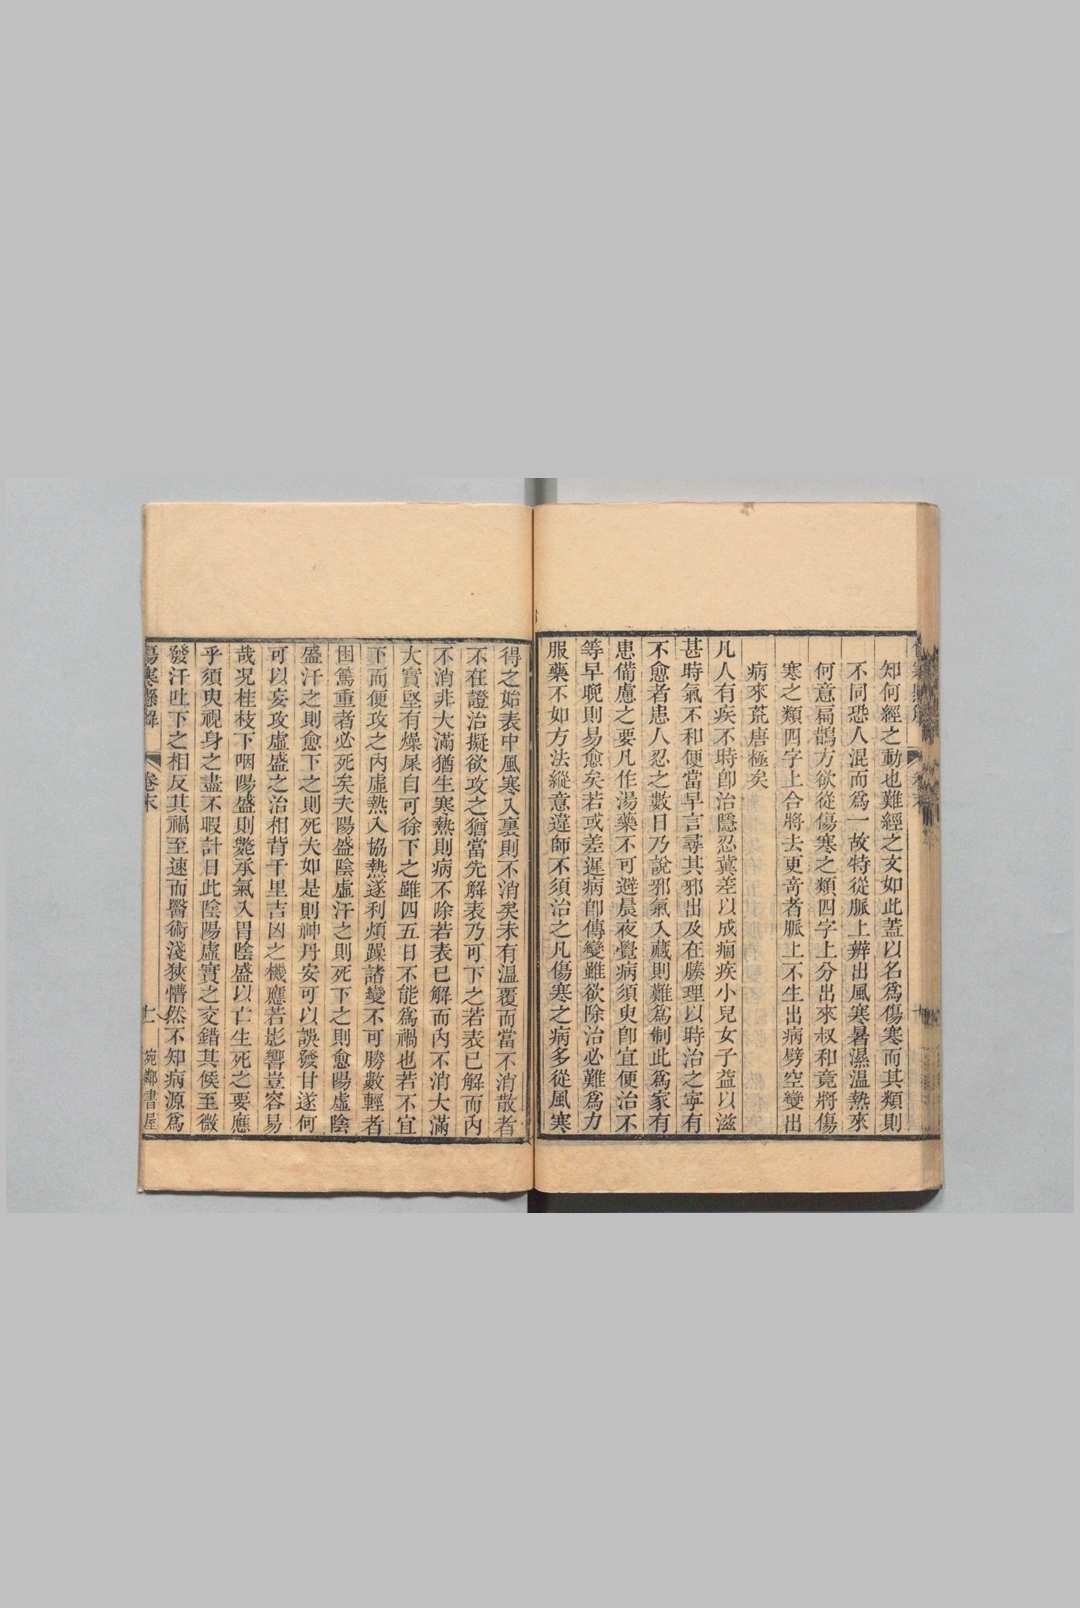 知何經之動也難經之文如此蓋以名爲傷寒而其類則
不同恐人混而爲一故特從脈上辨出風寒暑濕溫熱來
何意扁鵲方欲從傷寒之類四字上分出來叔和竟將傷
寒之類四字上合將去更竒者脈上不生出病劈空變出
病來荒唐極矣
凡人有疾不時卽治隱忍冀差以成痼疾小兒女子益以滋
甚時氣不和便當早言尋其邪出及在腠理以時治之寜有
不愈者患人忍之數日乃說邪氣入藏則難爲制此爲家有
患備慮之要凡作湯藥不可避晨夜覺病須臾卽宜便治不
等早晚則易愈矣若或差遲病卽傳變雖欲除治必難爲力
服藥不如方法縱意違師不須治之凡傷寒之病多從風寒
得之始表中風寒入裏則不消矣未有溫覆而當不消散者
不在證治擬欲攻之猶當先解表乃可下之若表已解而内
不消非大滿猶生寒熱則病不除若表已解而内不消大滿
大實堅有燥屎自可徐下之雖四五日不能爲禍也若不宜
下而便攻之内虛熱入協熱遂利煩躁諸變不可勝數輕者
困篤重者必死矣夫陽盛陰虛汗之則死下之則愈陽虛陰
盛汗之則愈下之則死夫如是則神丹安可以誤發甘遂何
可以妄攻虛盛之治相背千里吉凶之機應若影響豈容易
哉况桂枝下咽陽盛則斃承氣入胃陰盛以亡生死之要應
乎須臾視身之盡不暇計日此陰陽虛實之交錯其候至微
發汗吐下之相反其禍至速而醫術淺狹懵然不知病源爲
傷寒懸解 卷末 十一 宛鄰書屋